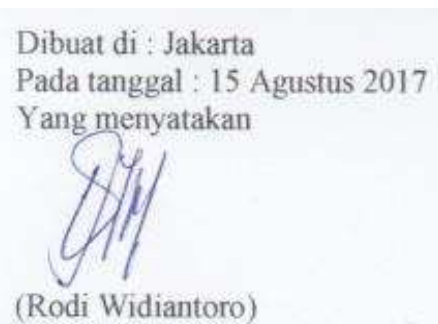 Dibuat di : Jakarta
Pada tanggal : 15 Agustus 2017
Yang menyatakan
(Rodi Widiantoro)